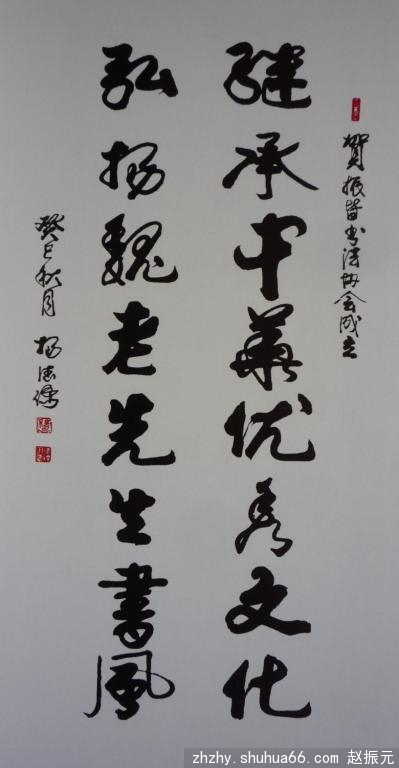 賀振皆书法协会成立
継承中華优秀文化
弘扬魏老先生書風
癸巳秋月
zhzhy.shuhua66.com 赵振元